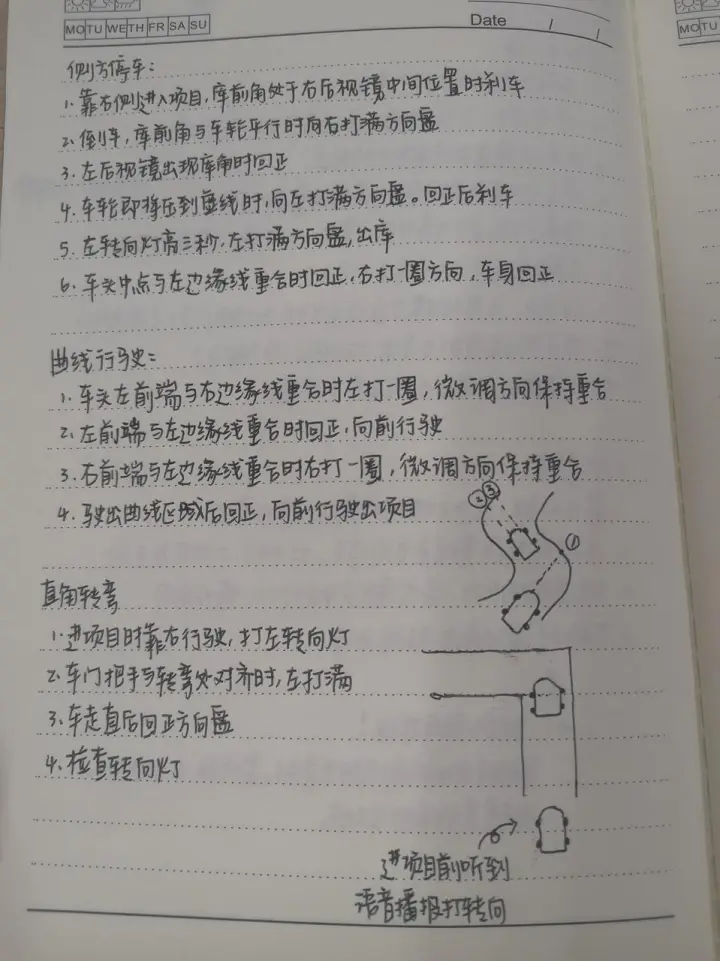 MO TU WE TH FR SA SU
Date / /
MO TU
侧方停车:
1. 靠右侧进入项目,库前角处于右后视镜中间位置时刹车
2. 倒车,库前角与车轮平行时向右打满方向盘
3. 左后视镜出现库角时回正
4. 车轮即将压到虚线时,向左打满方向盘。回正后刹车
5. 左转向灯亮三秒,左打满方向盘,出库
6. 车头中点与左边缘线重合时回正,右打一圈方向,车身回正
曲线行驶:
1. 车头左前端与右边缘线重合时左打一圈,微调方向保持重合
2. 左前端与左边缘线重合时回正,向前行驶
3. 右前端与左边缘线重合时右打一圈,微调方向保持重合
4. 驶出曲线区域后回正,向前行驶出项目
② ③
①
直角转弯
1. 进项目时靠右行驶,打左转向灯
2. 车门把手与转弯处对齐时,左打满
3. 车走直后回正方向盘
4. 检查转向灯
进项目前听到
语音播报打转向